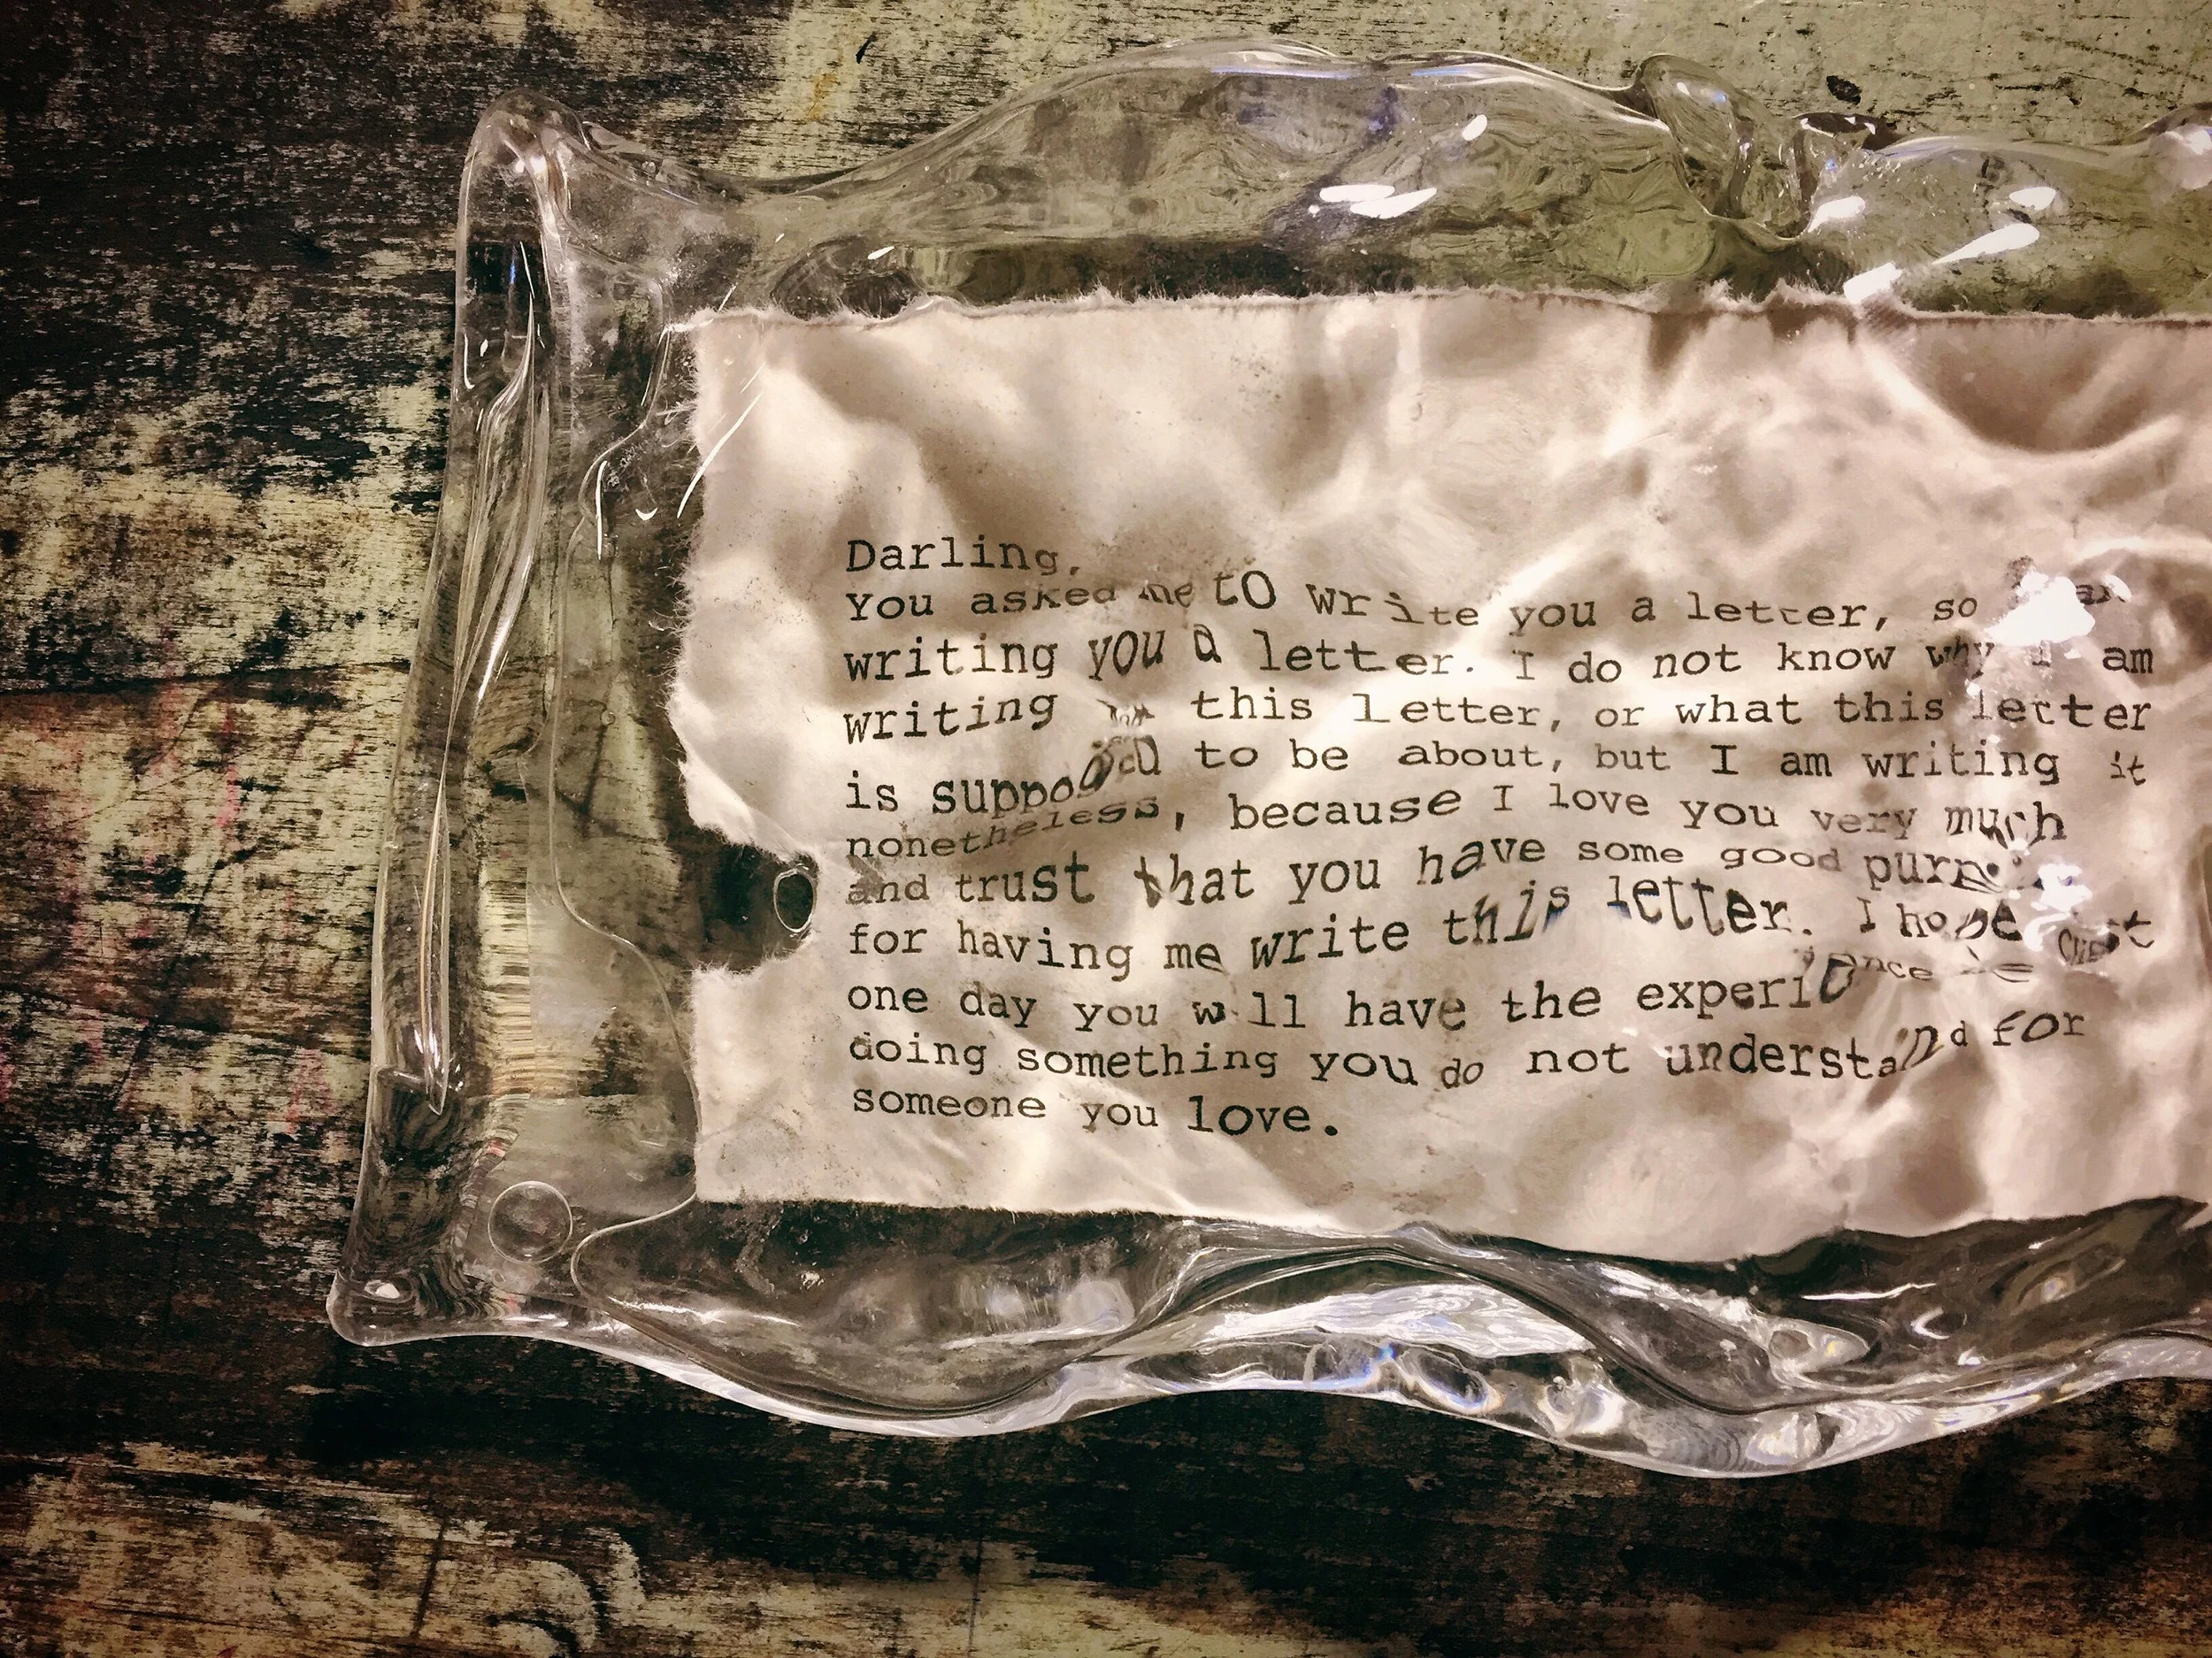 Darling,
You asked me to write you a letter, so
writing you a letter. I do not know why I am
writing this letter, or what this letter
is supposed to be about, but I am writing it
nonetheless, because I love you very much
and trust that you have some good
for having me write this letter. I hope
one day you will have the experience
doing something you do not understand for
someone you love.